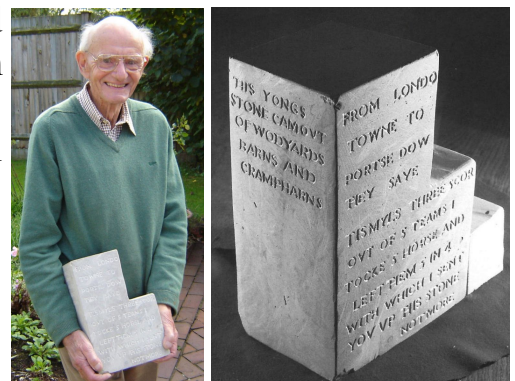 THIS YONGS
STONE CAMOVT
OF WODYARDS
BARNS AND
CRAMPHARNS
FROM LONDO
TOWNE TO
PORTSE DOW
HEY SAYE
TISMYLS THREESCOR
OVT OF 5 TEAMS I
TOCKE 5 HORSE AND
LEFT IN 4
WITH WHICH I SENT
YOV VP THIS STONE
NOTMORE